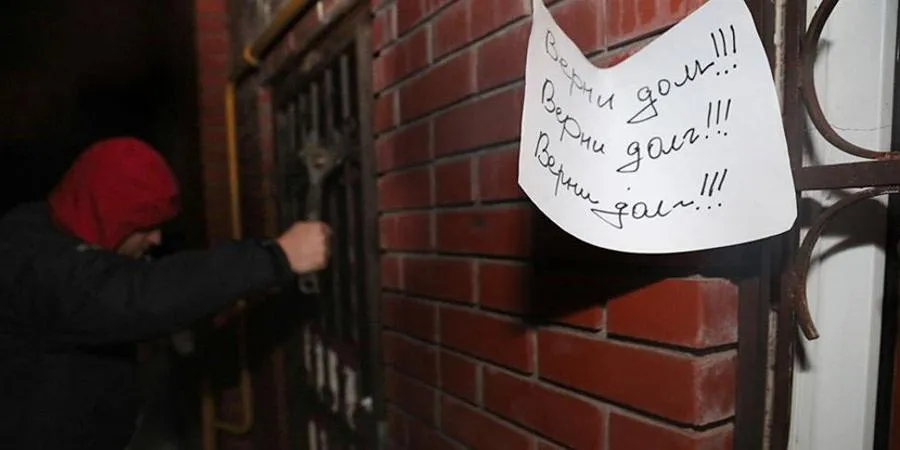 Верни долг!!!
Верни долг!!!
Верни долг!!!